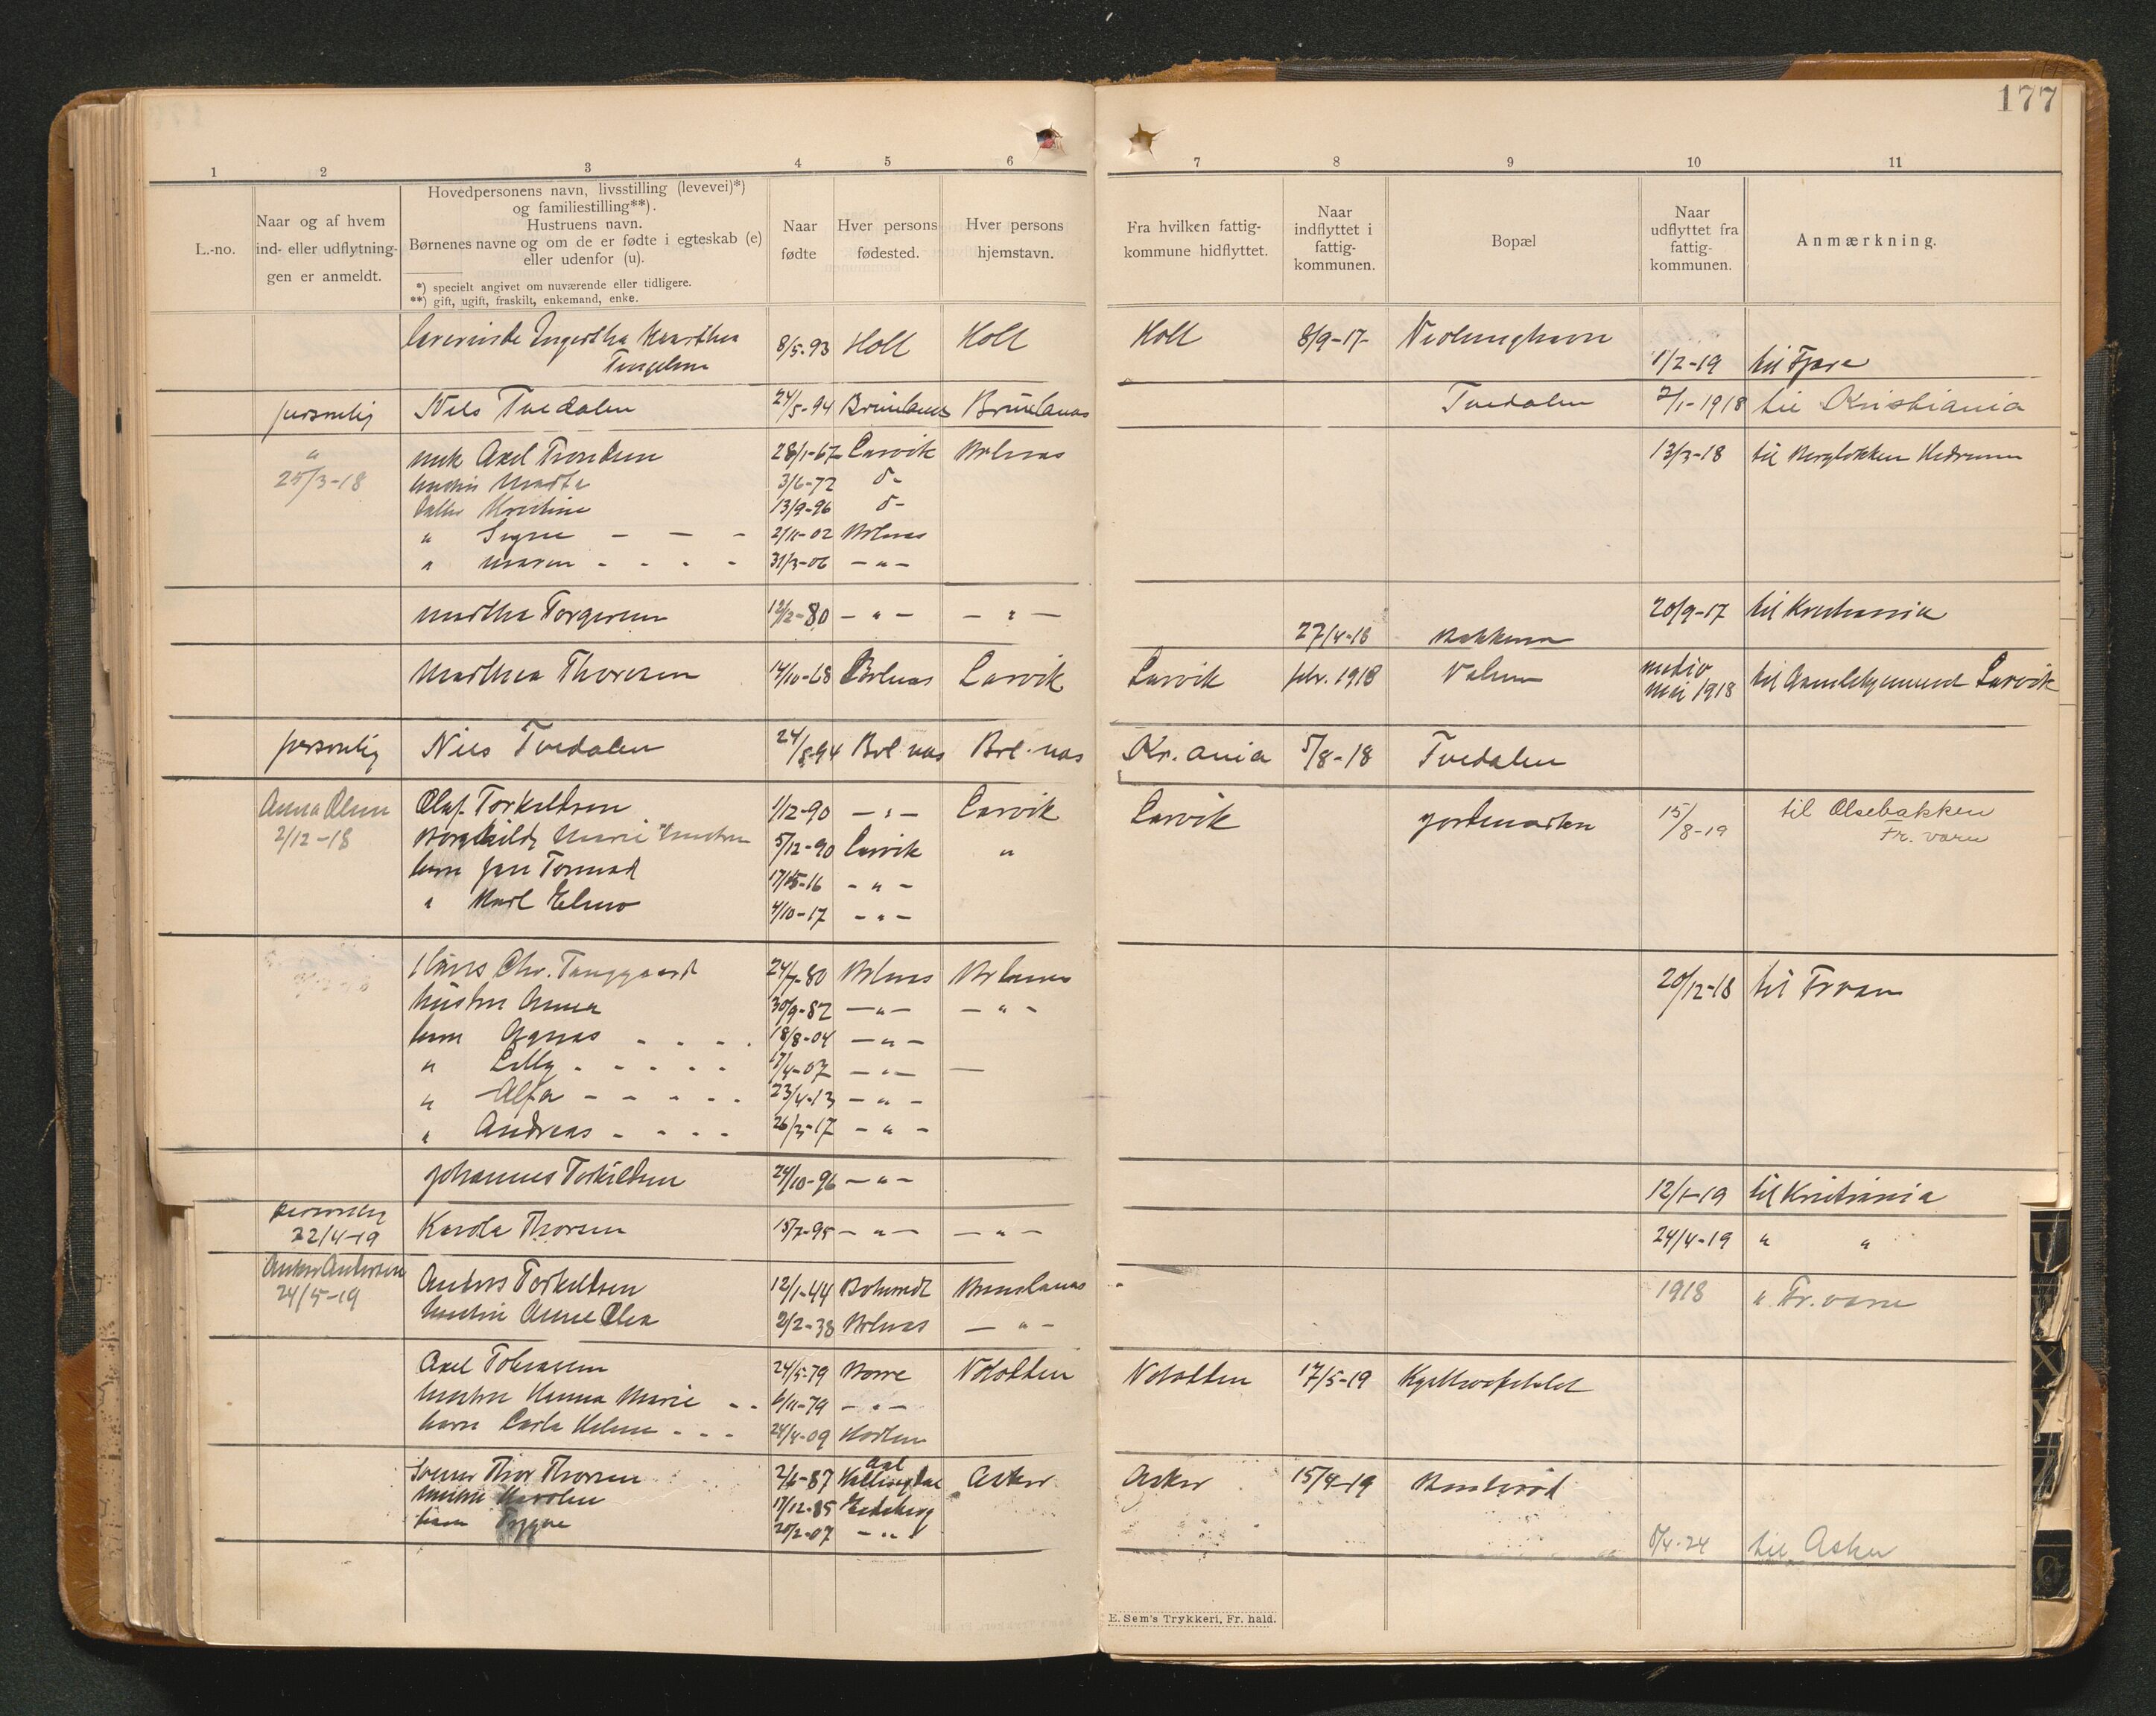 177
1 2 3 4 5 6 7 8 9 10 11
L.-no.
Naar og af hvem
ind- eller udflytnin-
gen er anmeldt.
Hovedpersonens navn, livsstilling (levevei)*)
og familiestilling**).
Hustruens navn.
Børnenes navne og om de er fødte i egteskab (e)
eller udenfor (u).
*) specielt angivet om nuværende eller tidligere.
**) gift, ugift, fraskilt, enkemand, enke.
Naar
fødte
Hver persons
fødested.
Hver persons
hjemstavn.
Fra hvilken fattig-
kommune hidflyttet.
Naar
indflyttet i
fattig-
kommunen.
Bopæl
Naar
udflyttet fra
fattig-
kommunen.
Anmærkning.
Lærerinde Ingertha Marthea 8/5-93 Holt Holt Holt 8/9-17-
1/2-19 til Fjære
personlig Nils Tvedalen 24/5-94 Brunlanes Brunlanes Tvedalen 2/1-1918 til Kristiania
" Axel Trondsen 28/1-67 Larvik Brlnæs 13/3-18 til Hedrum
25/3-18 hustru Marta 3/6-72 d-
Datter Kristine 13/9-96 d-
" Signe - - - 2/11-02 Brlnæs
" Maren - - - - 31/3-06 - " -
Martha Torgersen 12/2-80 - " - - " - 20/9-17 til Kristiania
27/4-18 Bakkene
Marthea Thoresen 14/10-68 Brlnæs Larvik Larvik febr. 1918 medio
mai 1918 til Gamlehjemmet Larvik
personlig Nils Tvedalen 24/8-94 Brl.næs Brl.næs Kr.ania 5/8-18 Tvedalen
Anna Olsen Olaf Torkildsen 1/12-90 - " - Larvik Larvik 15/8-19 til Olsebakken
2/12-18 Borghild Marie hustru 5/12-90 Larvik " Fr. værn
barn 17/15-16 - " -
" Karl Elmo 4/10-17 - " -
Hans Chr. Tanggaard 24/7-80 Brlnæs Brlanes 20/12-18 til Frværn
hustru Anna 30/9-82 - " - - " -
barn Agnes - - - - 18/8-04 - " -
" Lilly - - - - - 17/4-07 - " - -
" Alfa - - - - - 23/4-13 - " -
" Andreas - - - - 26/3-17 - " -
Johannes Torkildsen 24/10-96 - " - 12/1-19 til Kristiania
personlig
22/4-19 Karola Thorsen 15/7-95 - " - - " - 24/4-19 " "
Anders Andersen
24/5-19 Anders Torkildsen 12/1-44 Brunlanes 1918 " Fr.værn
hustru Anne Olea 2/2-38 Brlnæs - " -
Axel Tobiassen 24/5-79 Borre Notodden Notodden 17/5-19
hustru Hanna Marie - - 6/11-79 - " -
barn Carla Helene - - - 24/4-09 Horten
Thor Thorsen 2/6-87 Aal
Hallingdal Asker Asker 15/4-19
hustru 17/12-85 Eidsberg
barn Trygve 20/2-07 - " -
5/4-24 til Asker
E. Sem's Trykkeri, Fr. hald.